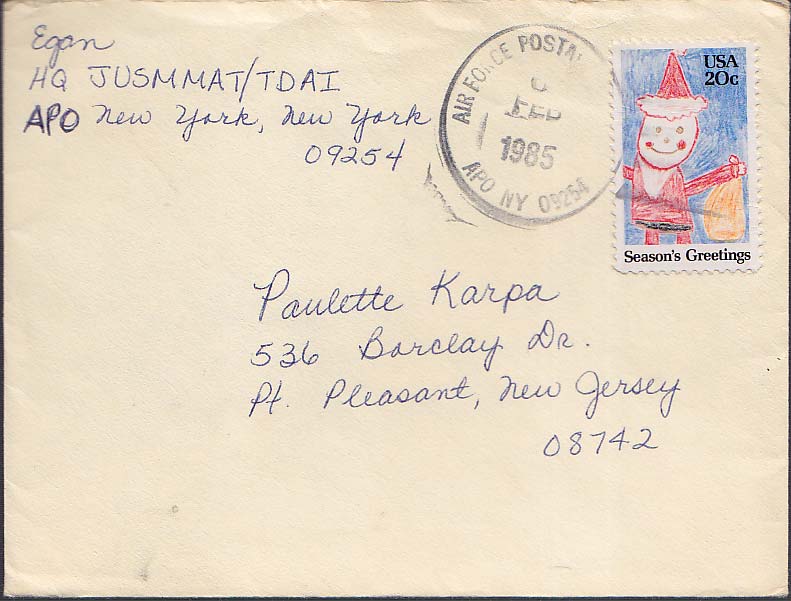 Egan
HQ JUSMMAT/TDAI
APO New York, New York
09254
AIR FORCE POSTAL
FEB
1985
APO NY 09254
USA
20c
Season's Greetings
Paulette Karpa
536 Barclay Dr.
Pt. Pleasant, New Jersey
08742